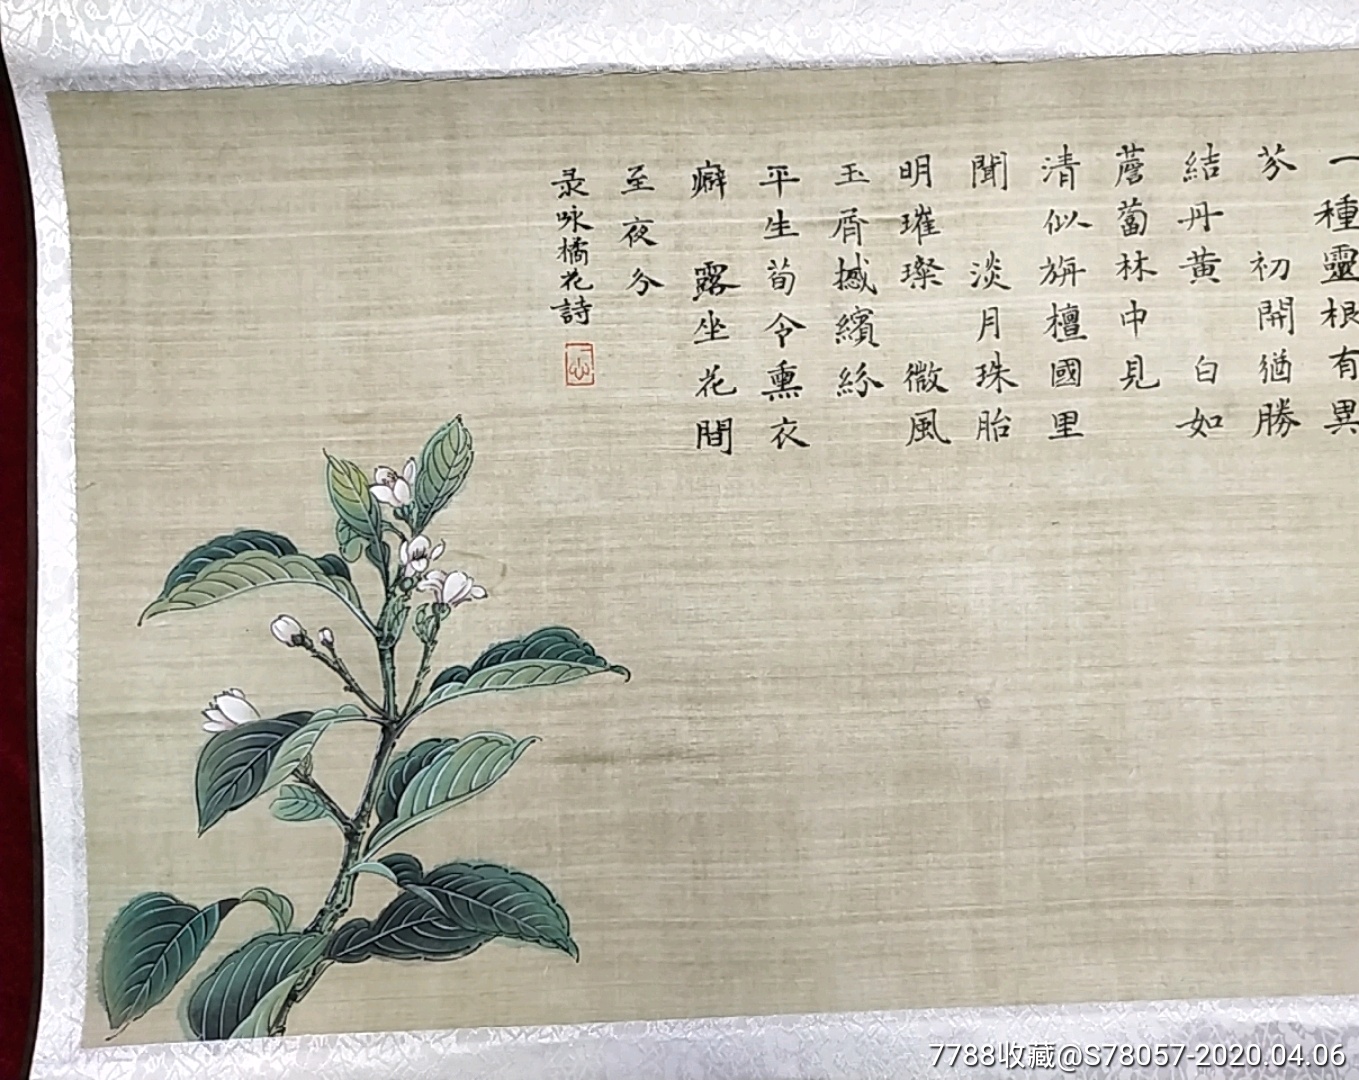 一種靈根有異
芬 初開猶勝
結丹黄 白如
薝蔔林中見
清似旃檀國里
聞 淡月珠胎
明璀璨 微風
玉屑撼繽紛
平生荀令熏衣
癖 露坐花間
至夜分
录咏橘花詩
7788收藏@S78057-2020.04.06